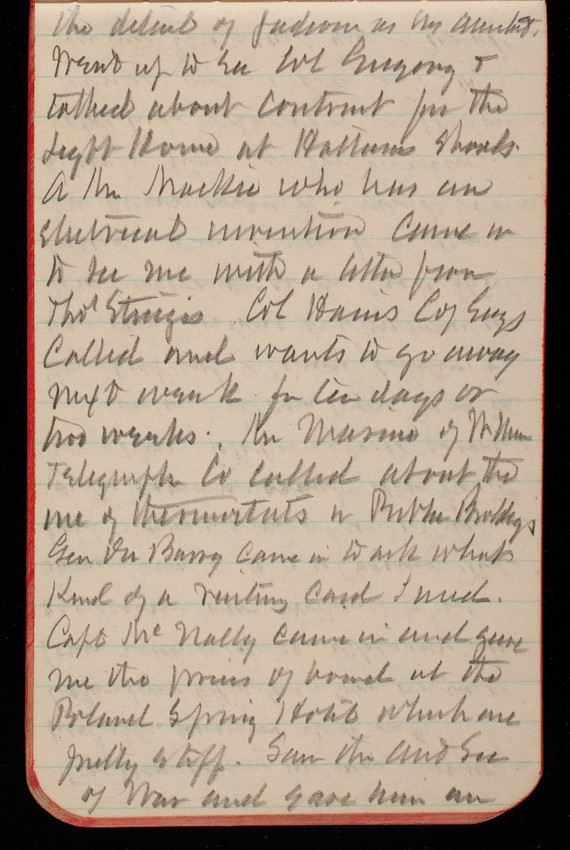 the detail of Judson as my assistant.
Went up to see Col Gregory &
talked about Contract for the
Light House at Hatteras Shoals.
A Mr Mackie who has an
electrical invention came in
to see me with a letter from
Thos Sturgis Col Hains C of Engs
Called and wants to go away
next week for ten days or
two weeks. Mr Marino of Wn
Telegraph Co called about the
use of thermostats in Public Bldgs
Gen Du Barry came in to ask what
Kind of a visiting card I used.
Capt Mc Nally came in and gave
me the prices of board at the
Poland Spring Hotel which are
pretty stiff. Saw the and Sec
of War and gave him an